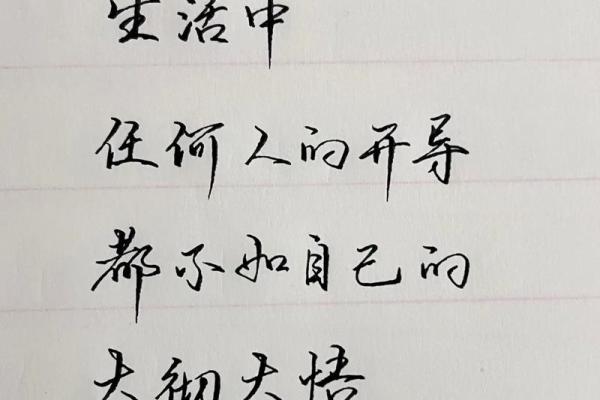 生活中
任何人的开导
都不如自己的
大彻大悟